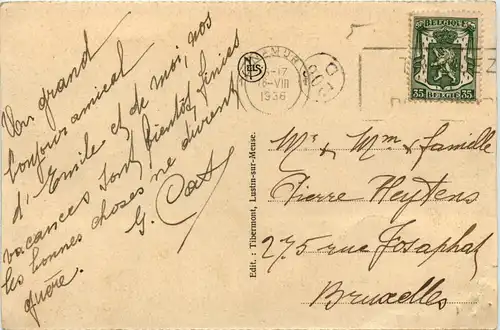 Un grand
bonjour amical
d'Emile et de moi, nos
vacances sont bientôt finies
les bonnes choses ne durent
guère.
G. Cat
16-17
16-VIII
1936
BELGIQUE
35 BELGIË 35
Edit. : Tibermont, Lustin-sur-Meuse.
Mr & Mme & famille
Pierre Heytens
275 rue Josaphat
Bruxelles